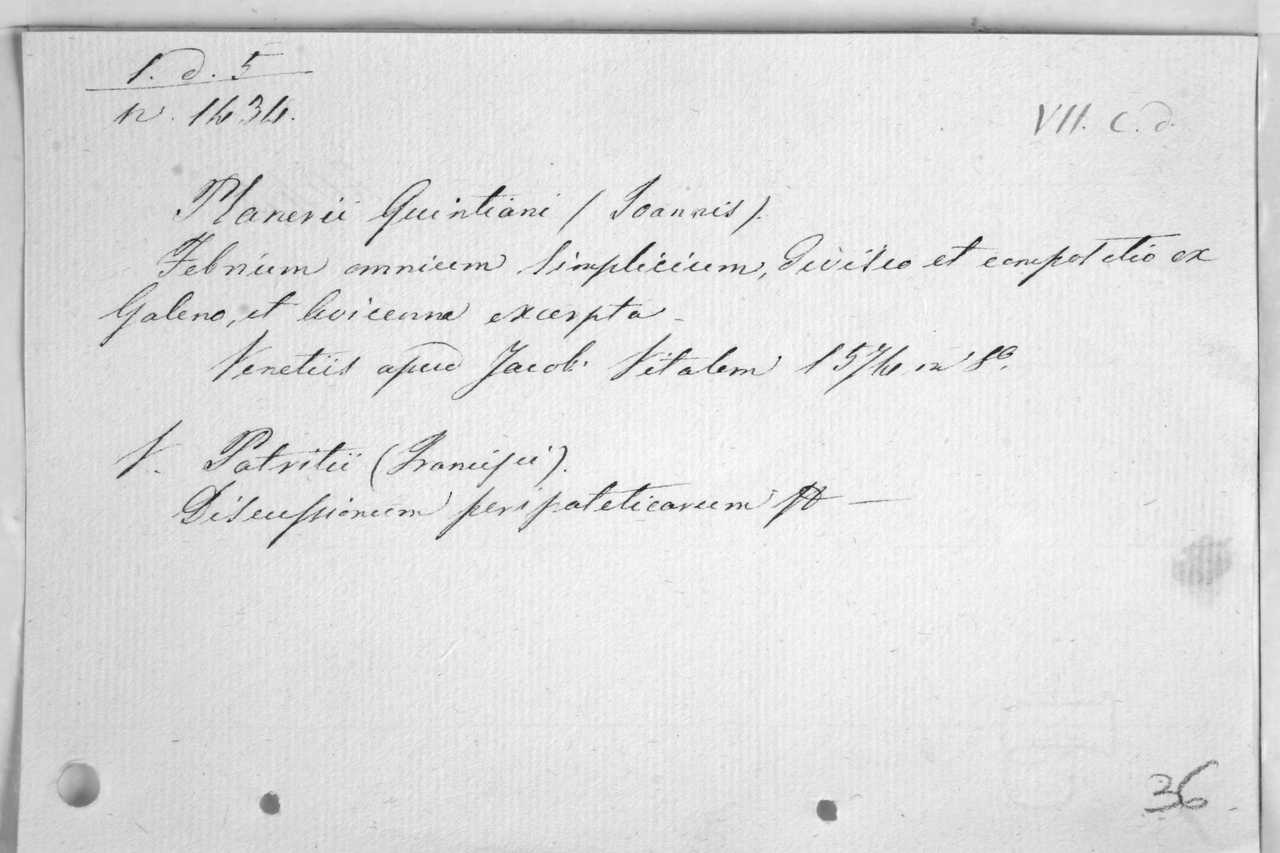 1. d. 5
n. 1434.
VII. c. d.
Planerii Quintiani (Joannis).
Febrium omnium simplicium, divisio et compositio ex
Galeno, et Avicenna excerpta -
Venetiis apud Jacob. Vitalem 1574 in 8º.
V. Patritii (Francisci).
Discussionum peripateticarum
36.